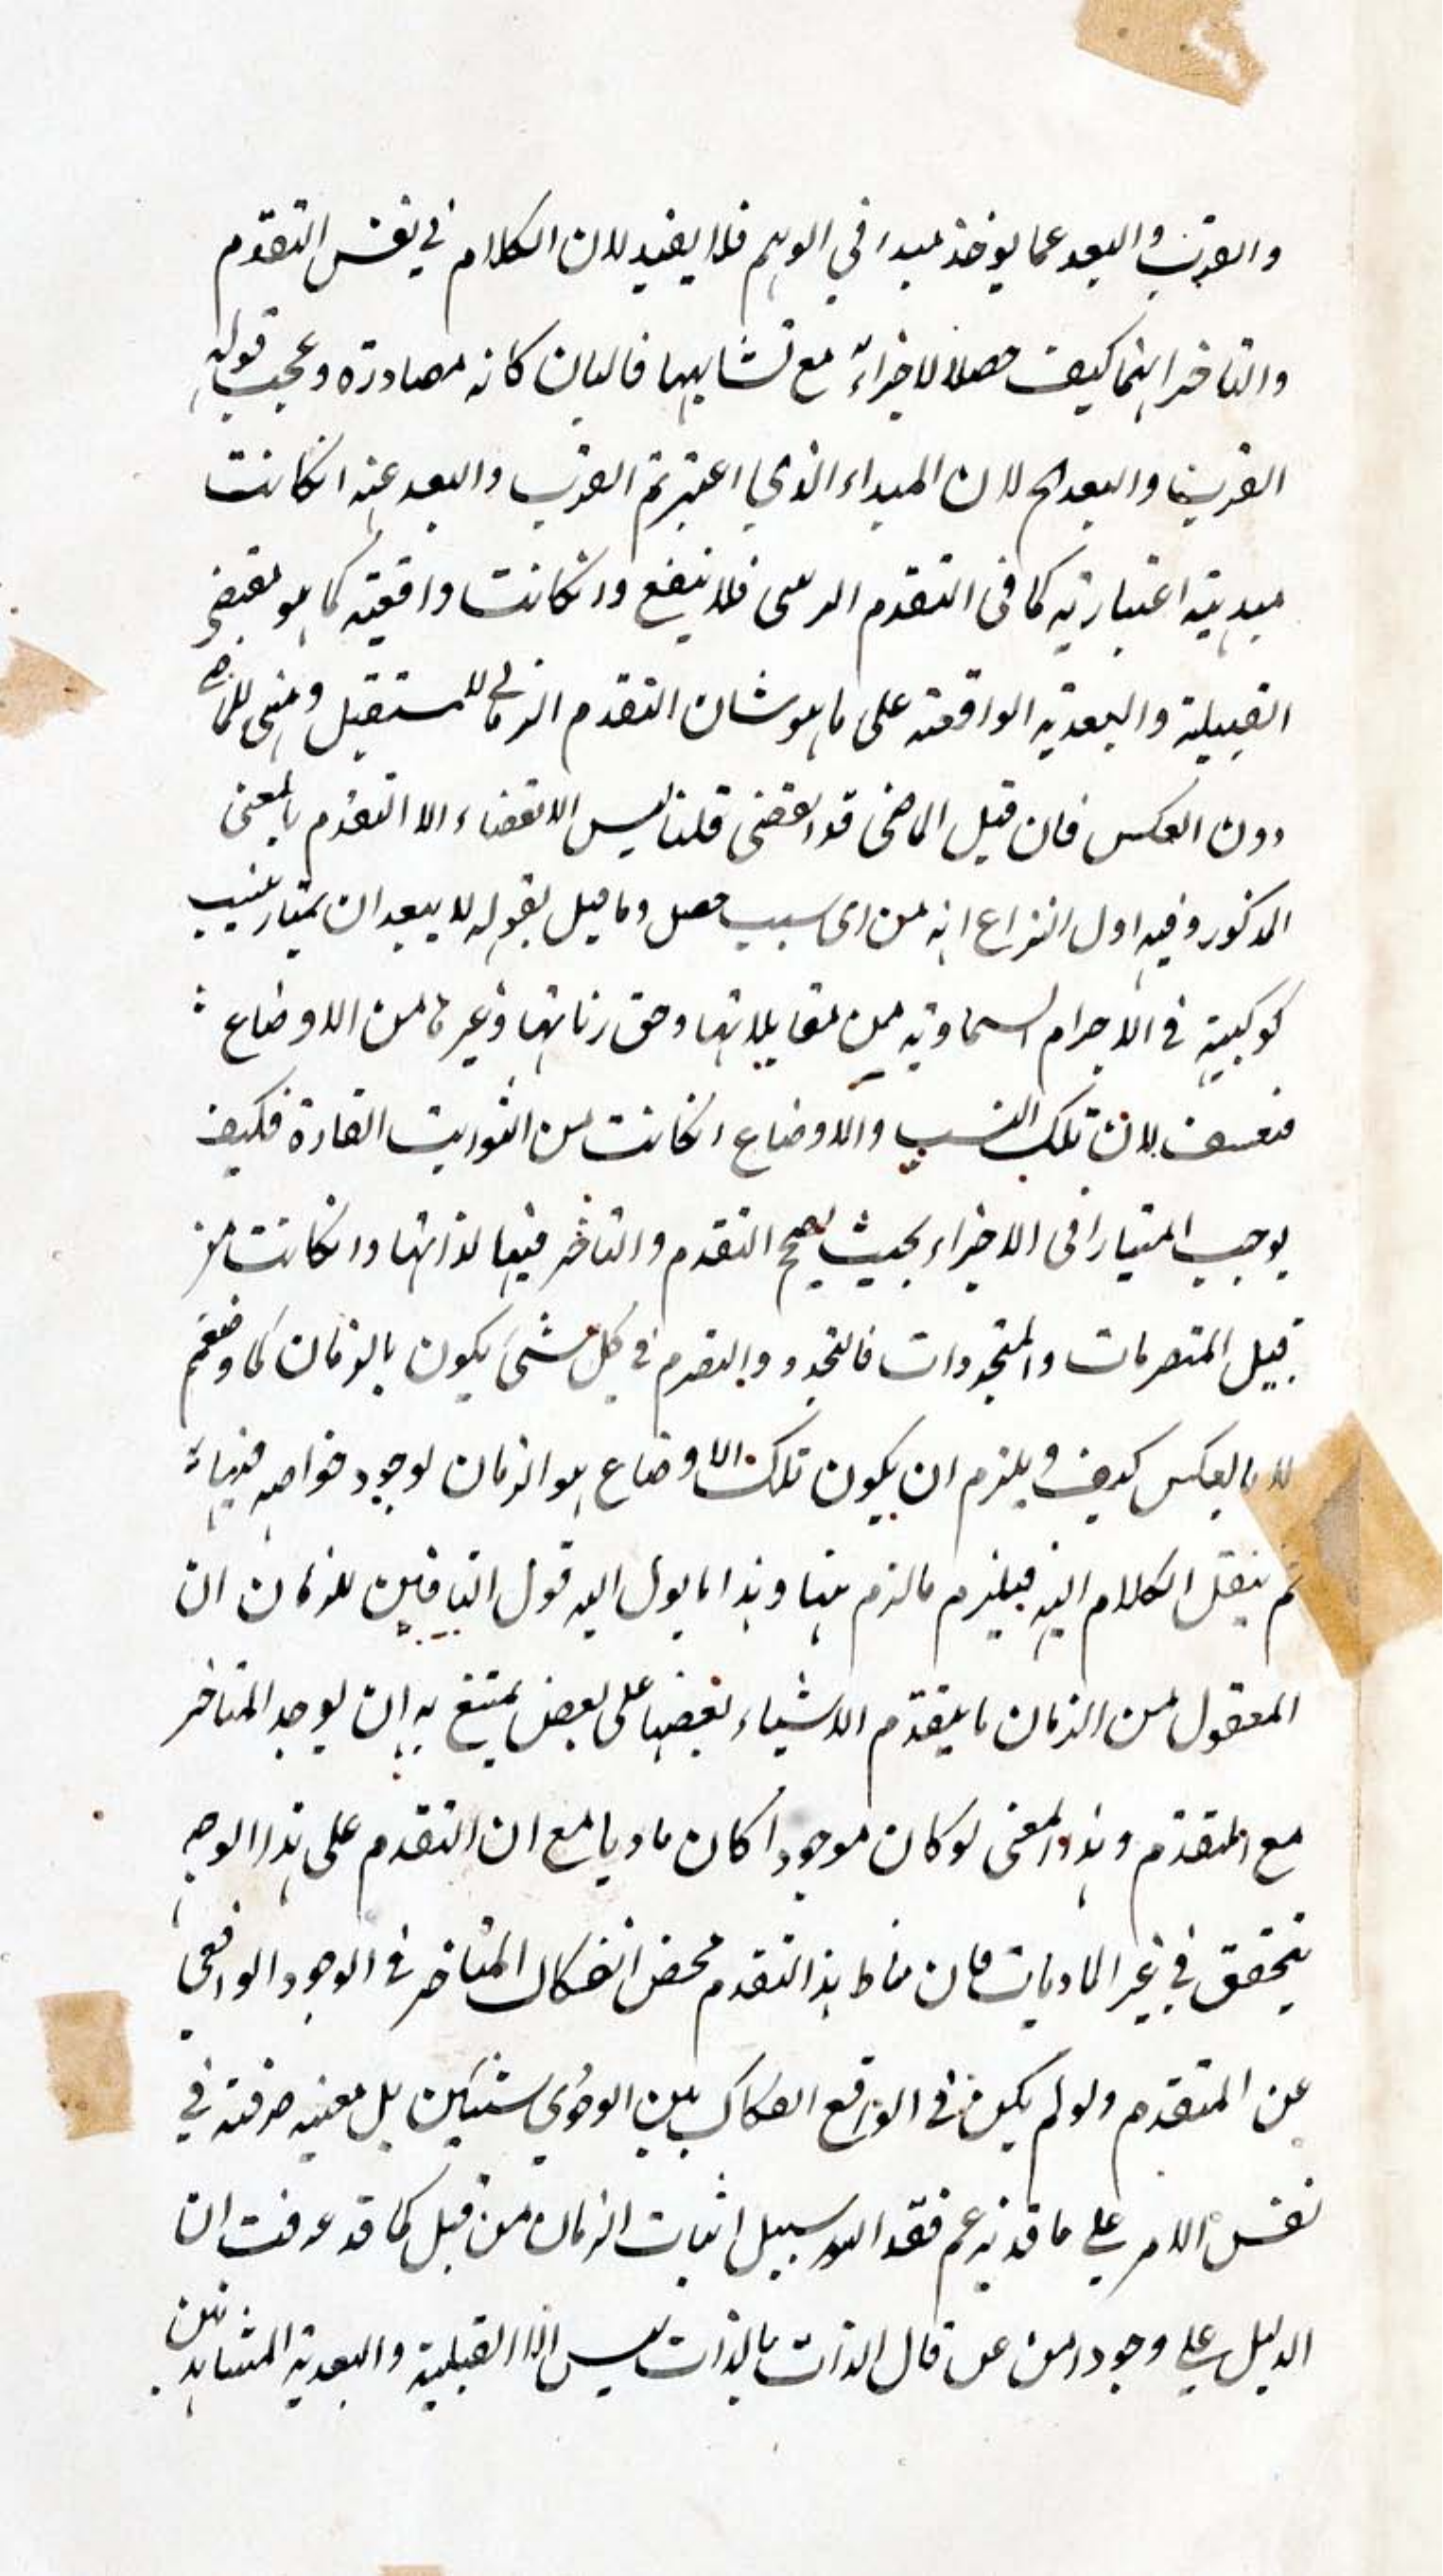 والقرب والبعد عما يوخذ مبدا في الوهم فلا يفيد لان الكلام في نفس التقدم
والتاخر انهما كيف حصلا للاجزاء مع تشابهها فالبيان كانه مصادرة وعجب قوله
القرب والبعد الخ لان المبداء الذي اعتبرتم القرب والبعد عنه انكانت
مبدئية اعتبارية كما في التقدم الرسمى فلا ينفع وانكانت واقعية كما هو مقتضى
القبيلية والبعدية الواقعة على ما هو شان التقدم الزماني للمستقبل ومنى للماضي
دون العكس فان قيل الماضى قد انقضى قلنا ليس الانقضاء الا التقدم بالمعنى
المذكور وفيه اول النزاع انه من اى سبب حصل وما قيل بقوله لا يبعد ان يمتاز بنسب
كوكبية في الاجرام السماوية من مقابلاتها ومقارناتها وغيرها من الاوضاع
فتعسف لان تلك النسب والاوضاع انكانت من الثوابت القارة فكيف
يوجب امتيازا في الاجزاء بحيث يصح التقدم والتاخر فيها لذاتها وانكانت من
قبيل المتصرمات والمتجددات فالتجدد والتصرم في كل شئ يكون بالزمان كما وضعتم
لا بالعكس كيف ويلزم ان يكون تلك الاوضاع هو الزمان لوجود خواصه فيها
ثم ينقل الكلام اليه فيلزم ما لزم هنا وهذا ما يول اليه قول النافين للزمان ان
المعقول من الزمان ما يتقدم الاشياء بعضها على بعض يمتنع به ان يوجد المتاخر
مع المتقدم وهذا المعنى لو كان موجودا كان ماديا مع ان التقدم على هذا الوجه
يتحقق في غير الماديات فان مناط هذا التقدم محض انفكاك المتاخر في الوجود الواقعي
عن المتقدم ولو لم يكن في الواقع انفكاك بين الوجودي شيئين بل معية صرفة في
نفس الامر على ما قد نزعم فقد انسد سبيل اثبات الزمان من قبل كما قد عرفت ان
الدليل على وجود من قال الذات بالذات ليس الا القبلية والبعدية المتشابهتين